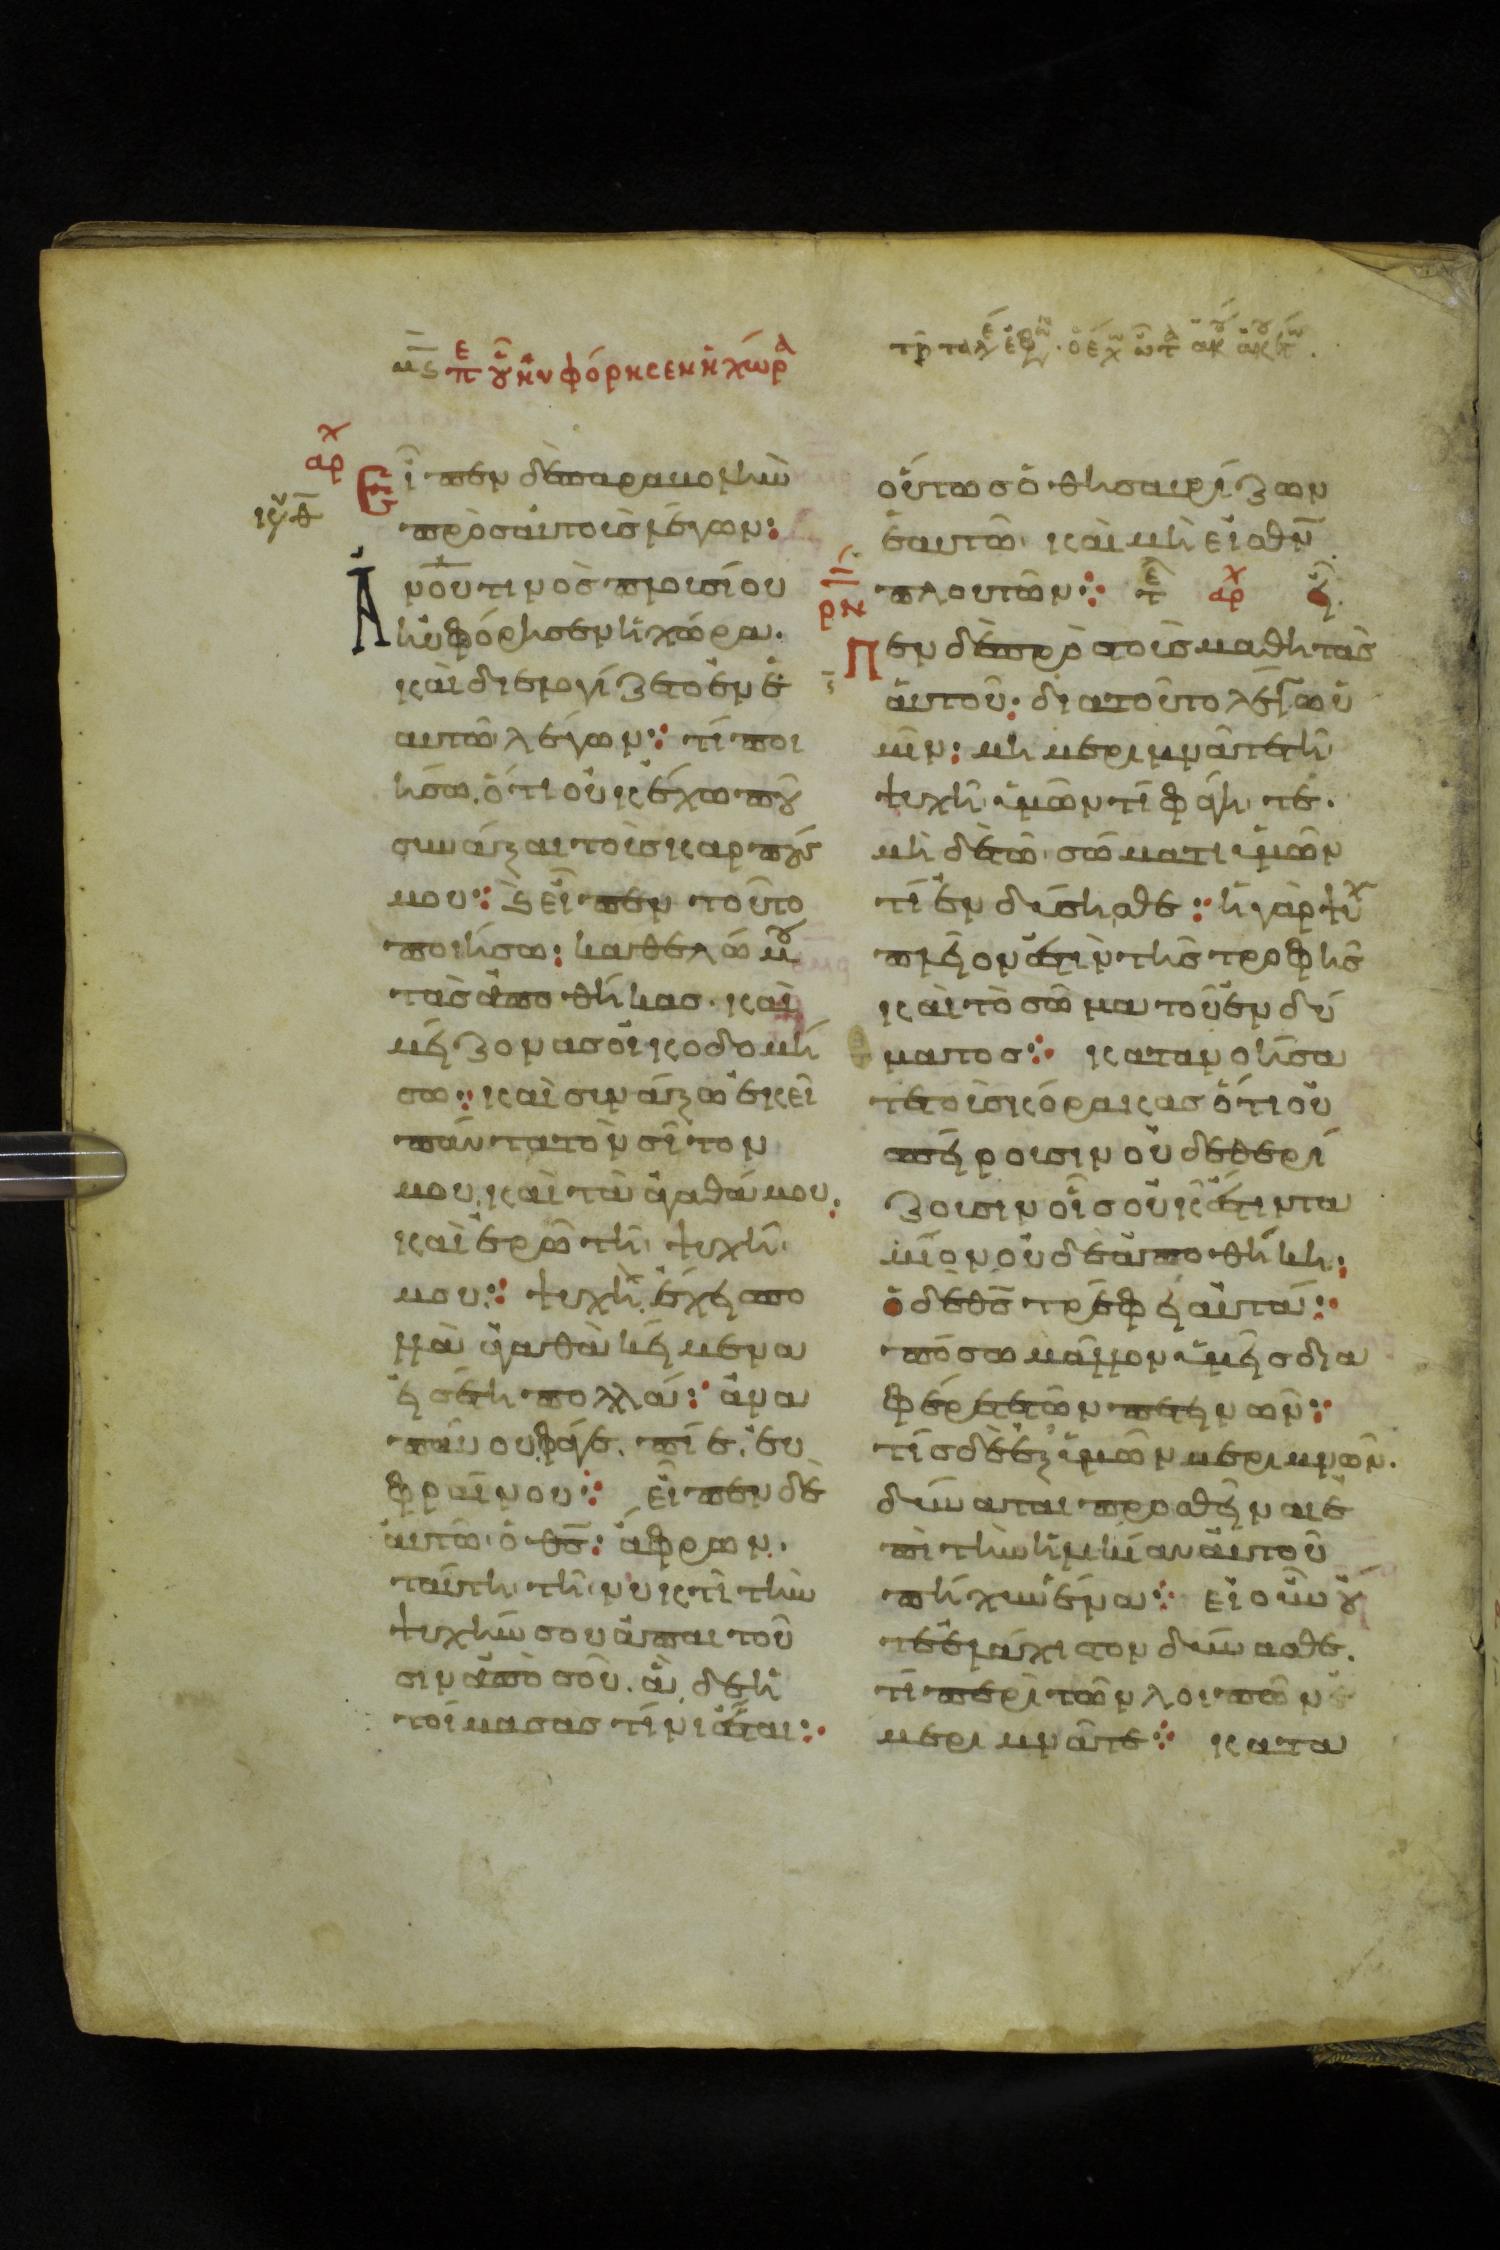 μϛ πε οὗ ηὐφόρησεν ἡ χώρα
αρχ
Εἶπεν δὲ παραβολὴν
πρὸς αὐτοὺς λέγων:
Ἀνου τινὸς πλουσίου
ηὐφόρησεν ἡ χώρα.
καὶ διελογίζετο ἐν ἑ
αυτῶ λέγων: τί ποι
ήσω, ὅτι οὐκ ἔχω ποῦ
συνάξαι τοὺς καρπούς
μου: κ εἶπεν τοῦτο
ποιήσω: καθελῶ μου
τὰς ἀποθήκας. καὶ
μείζονας οἰκοδομή
σω: καὶ συνάξω ἐκεῖ
πάντα τὸν σῖτον
μου, καὶ τὰ ἀγαθά μου:
καὶ ἐρῶ τῆ ψυχῆ
μου: ψυχή, ἔχεις πο
λλὰ ἀγαθὰ κείμενα
εἰς ἔτη πολλά: ἀνα
παύου φάγε, πίε, ευ
φραίνου: εἶπεν δὲ
αὐτῶ ὁ θς: ἄφρων.
ταύτη τῆ νυκτὶ τὴν
ψυχήν σου ἀπαιτοῦ
σιν ἀπὸ σοῦ. ἃ δὲ ἡ
τοίμασας τίνι ἔσται:
οὕτως ὁ θησαυρίζων
ἑαυτῶ καὶ μὴ εἰς θν
πλουτῶν: τε αρχ
ρν
Πεν δὲ πρὸ τοὺς μαθητὰς
αὐτοῦ: δια τοῦτο λέγω ὑ
μῖν: μὴ μεριμνᾶτε τῆ
ψυχῆ ὑμῶν τί φάγητε.
μὴ δὲ τῶ σώματι ὑμῶν
τί ἐνδύσησθε: ἡ γὰρ ψυχ
πλεῖον ἐστιν τῆς τροφῆς
καὶ τὸ σῶμα τοῦ ἐνδύ
ματος: κατανοήσα
τε τοὺς κόρακας ὅτι οὐ
σπείρουσιν οὐδὲ θερί
ζουσιν οἷς οὐκ ἔστιν τα
μῖον οὐδὲ ἀποθήκη:
ὁ δὲ θς τρέφει αὐτά:
πόσω μᾶλλον ὑμεῖς δια
φέρετε τῶν πετεινῶν:
τίς δὲ ἐξ ὑμῶν μεριμνῶν.
δύναται προσθεῖναι ἐ
πὶ τὴν ἡλικίαν αὐτοῦ
πῆχυν ἕνα: εἰ οὖν οὔ
τε ἐλάχιστον δύνασθε.
τί περὶ τῶν λοιπῶν
μεριμνᾶτε: κατα